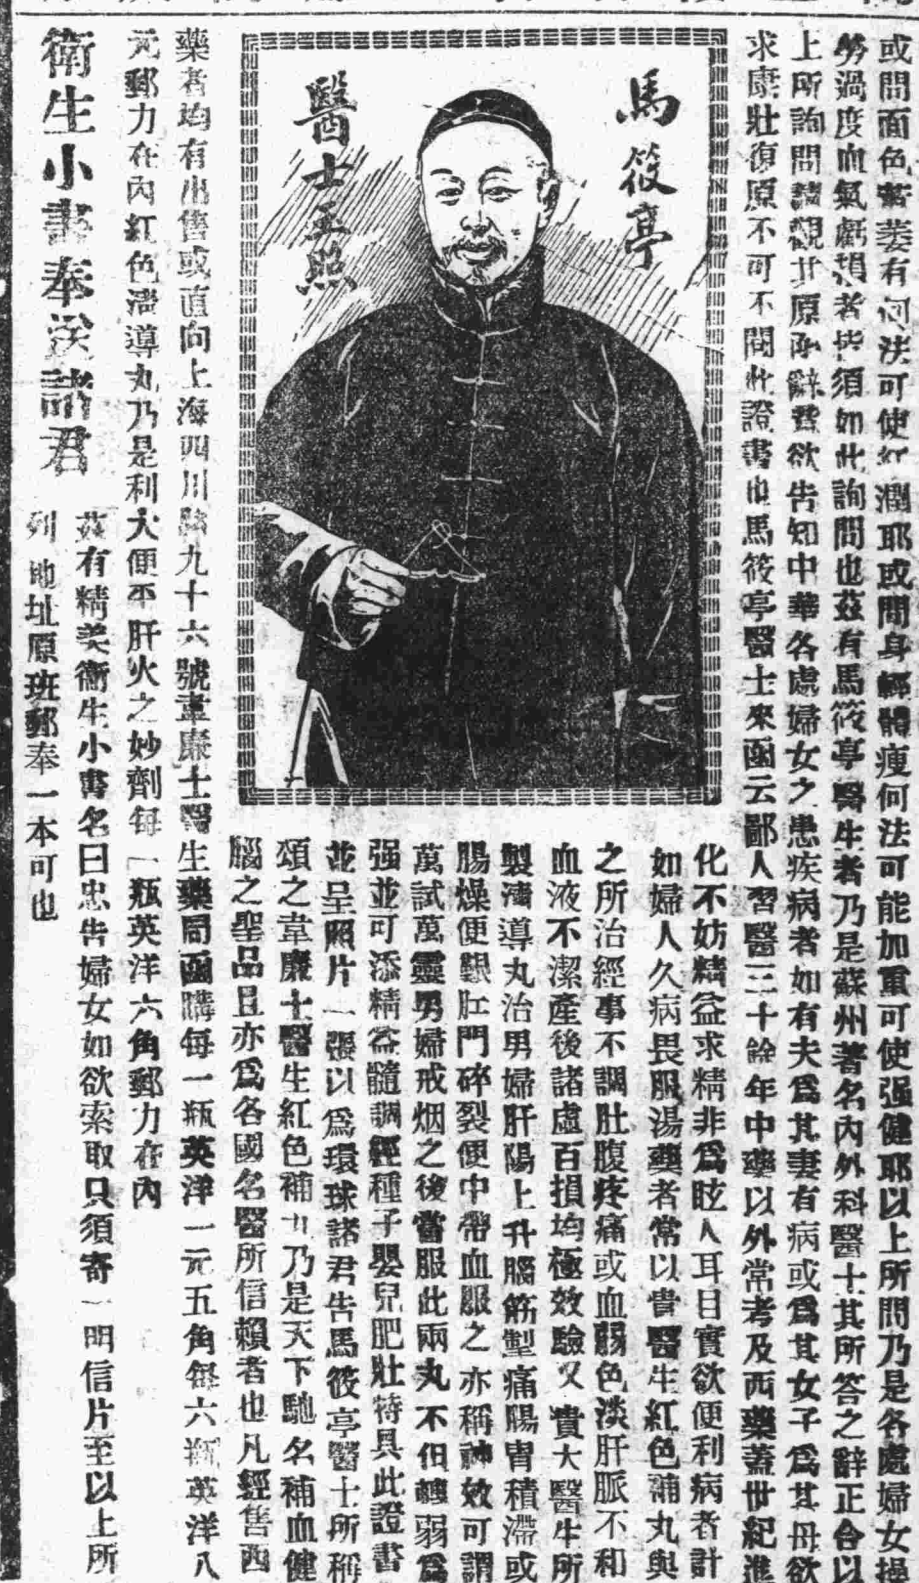 或問面色萎有何法可使紅潤耶或問身軀體瘦何法可能加重可使强健耶以上所問乃是各處婦女操
勞過度血氣虧損者皆須如此詢問也茲有馬筱亭醫生者乃是蘇州著名內外科醫士其所答之辭正合以
上所詢問請觀其原函辭費欲告知中華各處婦女之患疾病者如有夫爲其妻有病或爲其女子爲其母欲
求康壯復原不可不閱此證書也馬筱亭醫士來函云鄙人習醫三十餘年中藥以外常考及西藥蓋世紀進
化不妨精益求精非爲眩人耳目實欲便利病者計
如婦人久病畏服湯藥者常以貴醫生紅色補丸與
之所治經事不調肚腹疼痛或血弱色淡肝脈不和
血液不潔產後諸虛百損均極效驗又貴大醫生所
製清導丸治男婦肝陽上升腦筋掣痛腸胃積滯或
腸燥便艱肛門碎裂便中帶血服之亦稱神效可謂
萬試萬靈男婦戒烟之後當服此兩丸不但轉弱爲
强並可添精益髓調經種子嬰兒肥壯特具此證書
並呈照片一張以爲環球諸君告馬筱亭醫士所稱
頌之韋廉士醫生紅色補丸乃是天下馳名補血健
腦之聖品且亦爲各國名醫所信賴者也凡經售西
馬筱亭
醫士玉照
藥者均有出售或直向上海四川路九十六號韋廉士醫生藥局函購每一瓶英洋一元五角每六瓶英洋八
元郵力在內紅色清導丸乃是利大便平肝火之妙劑每一瓶英洋六角郵力在內
衛生小書奉送諸君
茲有精美衛生小書名曰忠告婦女如欲索取只須寄一明信片至以上所
列地址原班郵奉一本可也